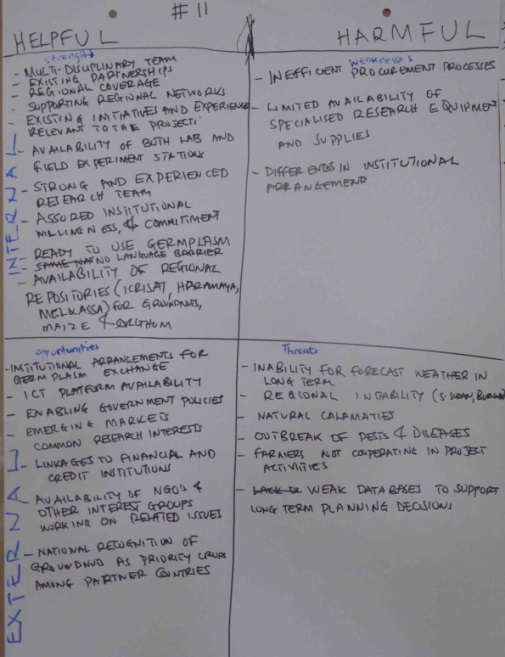 #11
HELPFUL
HARMFUL
INTERNAL
Strengths
- MULTI-DISCIPLINARY TEAM
- EXISTING PARTNERSHIPS
- REGIONAL COVERAGE
- SUPPORTING REGIONAL NETWORKS
- EXISTING INITIATIVES AND EXPERIENCE
RELEVANT TO THE PROJECT
- AVAILABILITY OF BOTH LAB AND
FIELD EXPERIMENT STATIONS
- STRONG AND EXPERIENCED
RESEARCH TEAM
- ASSURED INSTITUTIONAL
WILLINGNESS, & COMMITMENT
- READY TO USE GERMPLASM
- NO LANGUAGE BARRIER
- AVAILABILITY OF REGIONAL
REPOSITORIES (ICRISAT, HARAMAYA,
MELKASSA) FOR GROUNDNUTS,
MAIZE & SORGHUM
Weaknesses
- INEFFICIENT PROCUREMENT PROCESSES
- LIMITED AVAILABILITY OF
SPECIALISED RESEARCH EQUIPMENT
AND SUPPLIES
- DIFFERENCES IN INSTITUTIONAL
ARRANGEMENT
EXTERNAL
Oportunities
- INSTITUTIONAL ARRANGEMENTS FOR
GERM PLASM EXCHANGE
- ICT PLATFORM AVAILABILITY
- ENABLING GOVERNMENT POLICIES
- EMERGING MARKETS
COMMON RESEARCH INTERESTS
- LINKAGES TO FINANCIAL AND
CREDIT INSTITUTIONS
- AVAILABILITY OF NGO'S &
OTHER INTEREST GROUPS
WORKING ON RELATED ISSUES
- NATIONAL RECOGNITION OF
GROUNDNUD AS PRIORITY CROPS
AMONG PARTNER COUNTRIES
Threats
- INABILITY FOR FORECAST WEATHER IN
LONG TERM
- REGIONAL INSTABILITY (S. SUDAN, BURUNDI)
- NATURAL CALAMATIES
- OUTBREAK OF PESTS & DISEASES
- FARMERS NOT COOPERATING IN PROJECT
ACTIVITIES
- WEAK DATABASES TO SUPPORT
LONG TERM PLANNING DECISIONS